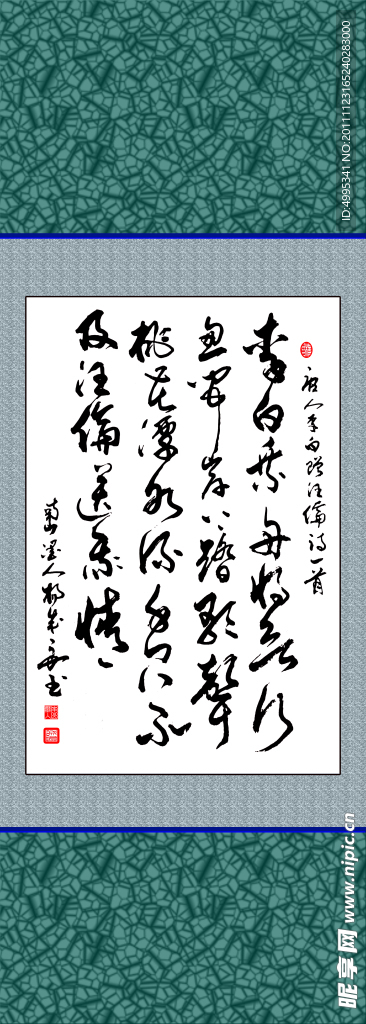 唐人李白贈汪倫詩一首
李白乘舟將欲行
忽聞岸上踏歌聲
桃花潭水深千尺不
及汪倫送我情
墨人 書
ID:4995341 NO:20111123165240283000
昵享网 www.nipic.cn